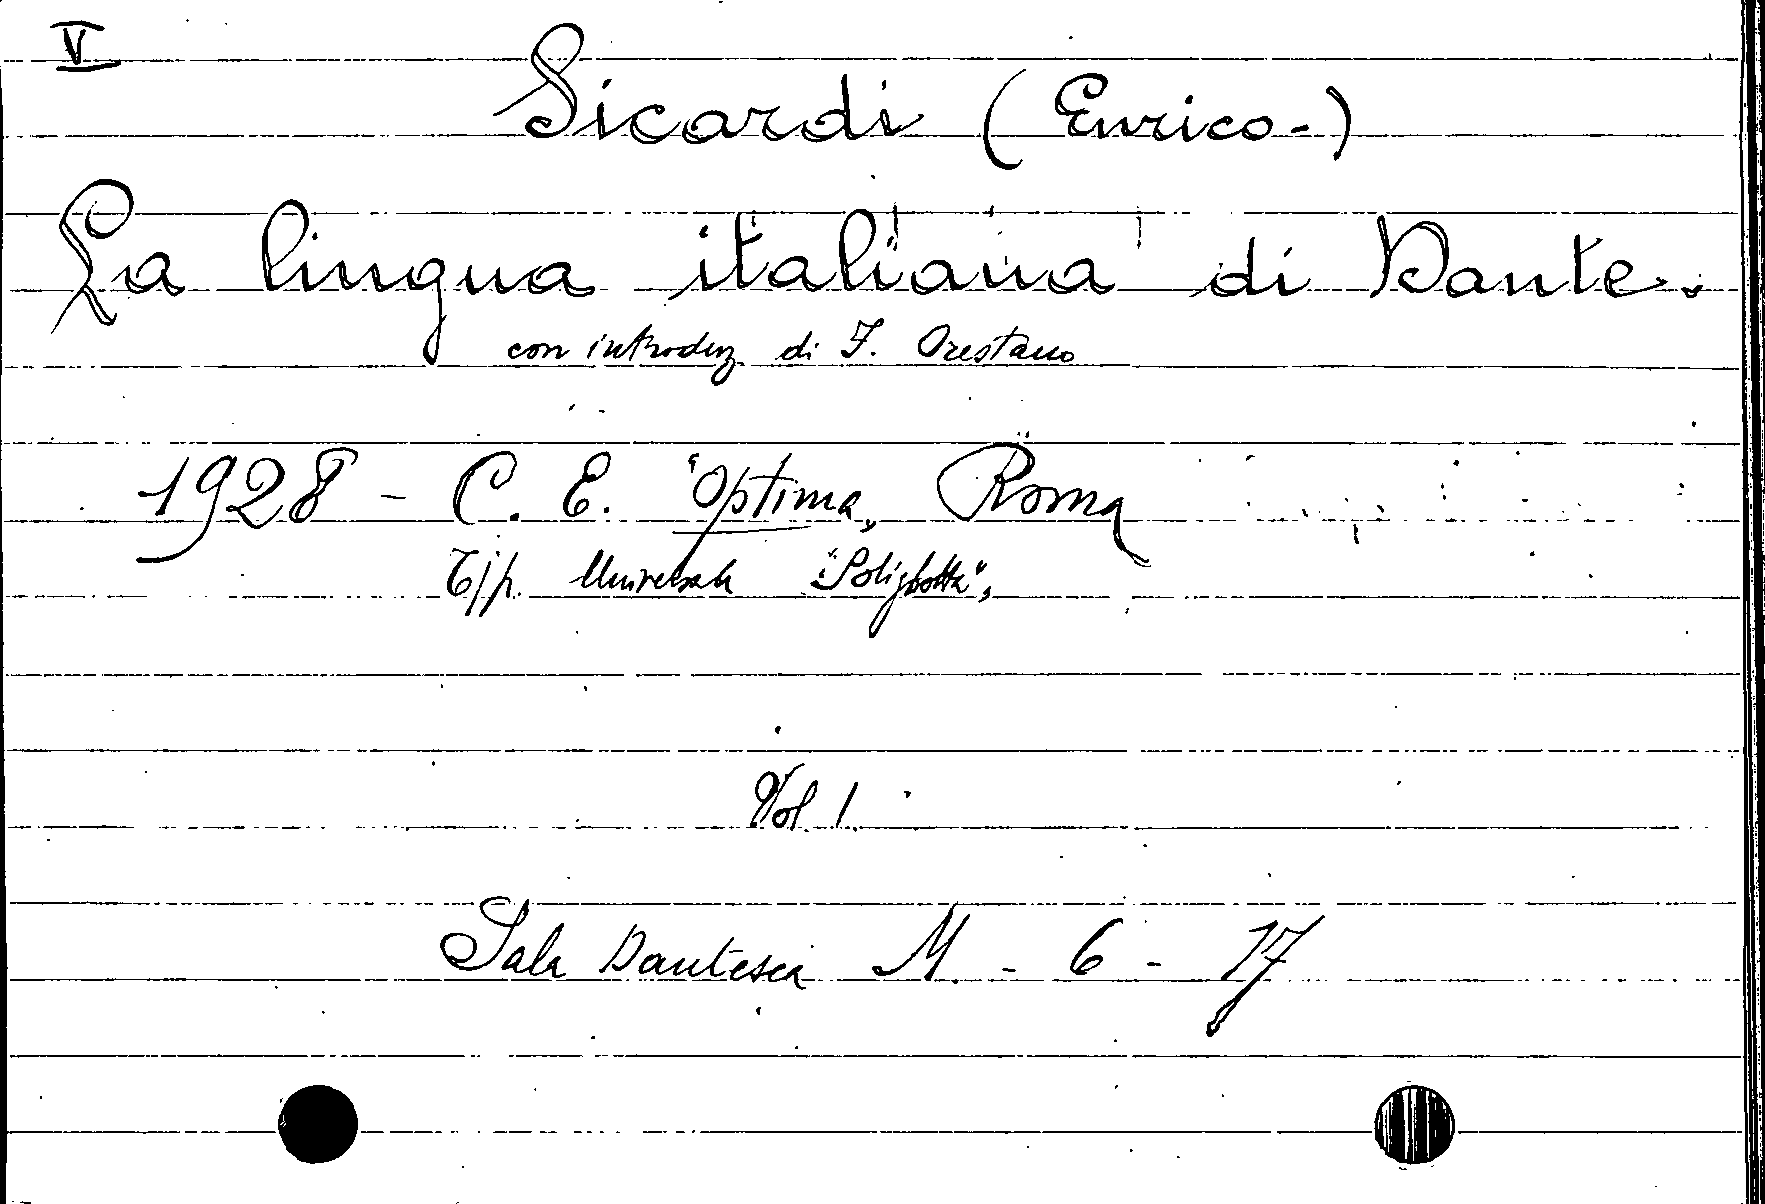 V
Sicardi (Enrico-)
La lingua italiana di Dante.
con introduz. di F. Orestano
1928 - C. E. "Optima„ Roma
Tip. Universale "Poliglotta",
Vol. 1.
Sala Dantesca M. - 6 - 17